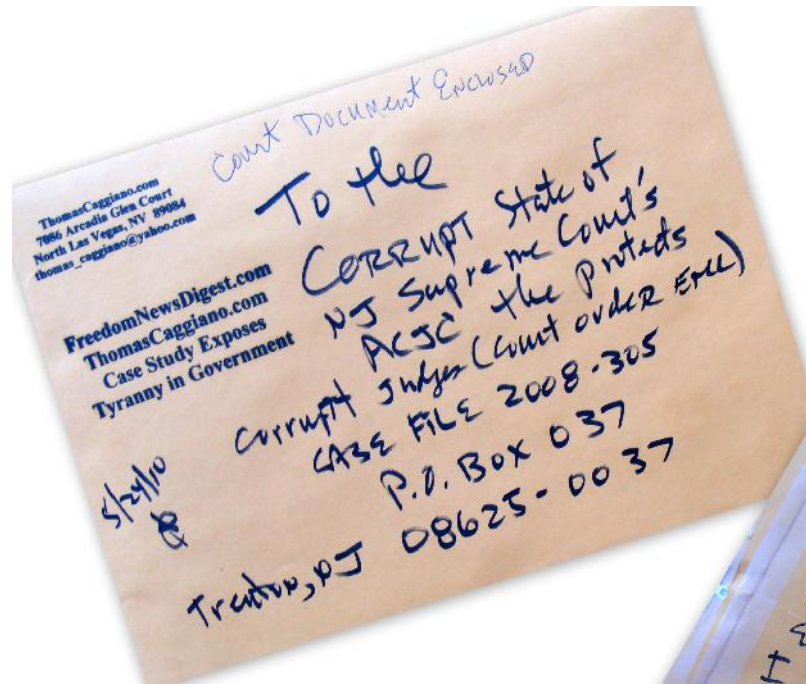 Court Document Enclosed
ThomasCaggiano.com
7086 Arcadia Glen Court
North Las Vegas, NV 89084
thomas_caggiano@yahoo.com
FreedomNewsDigest.com
ThomasCaggiano.com
Case Study Exposes
Tyranny in Government
To the
CORRUPT State of
NJ Supreme Court's
ACJC the Protects
Corrupt Judges (Court order Encl)
CASE FILE 2008-305
P.O. Box 037
Trenton, NJ 08625-0037
5/24/10